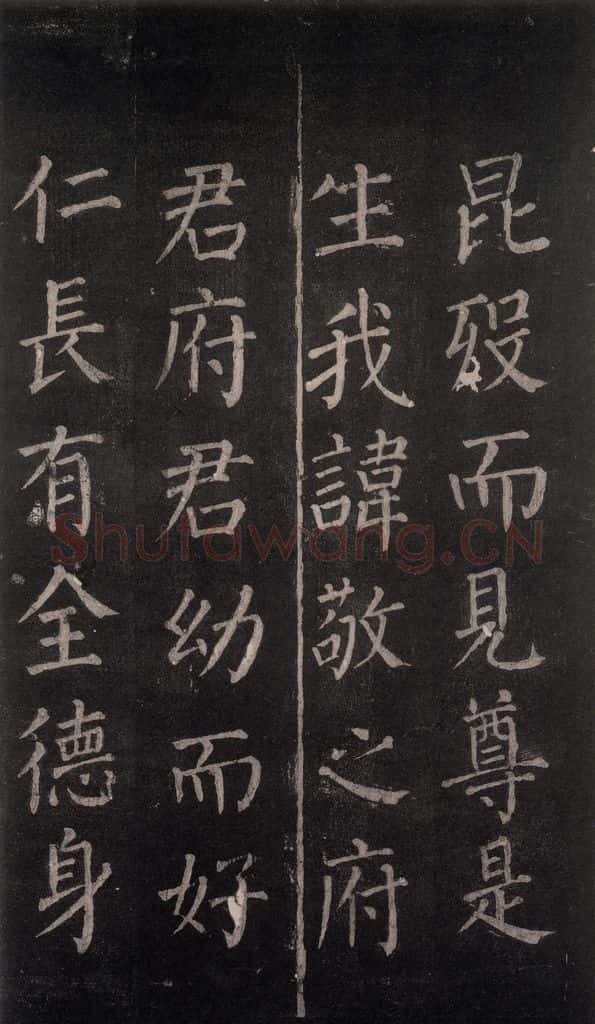 昆歿而見尊是
生我諱敬之府
君府君幼而好
仁長有全德身
Shufawang.CN